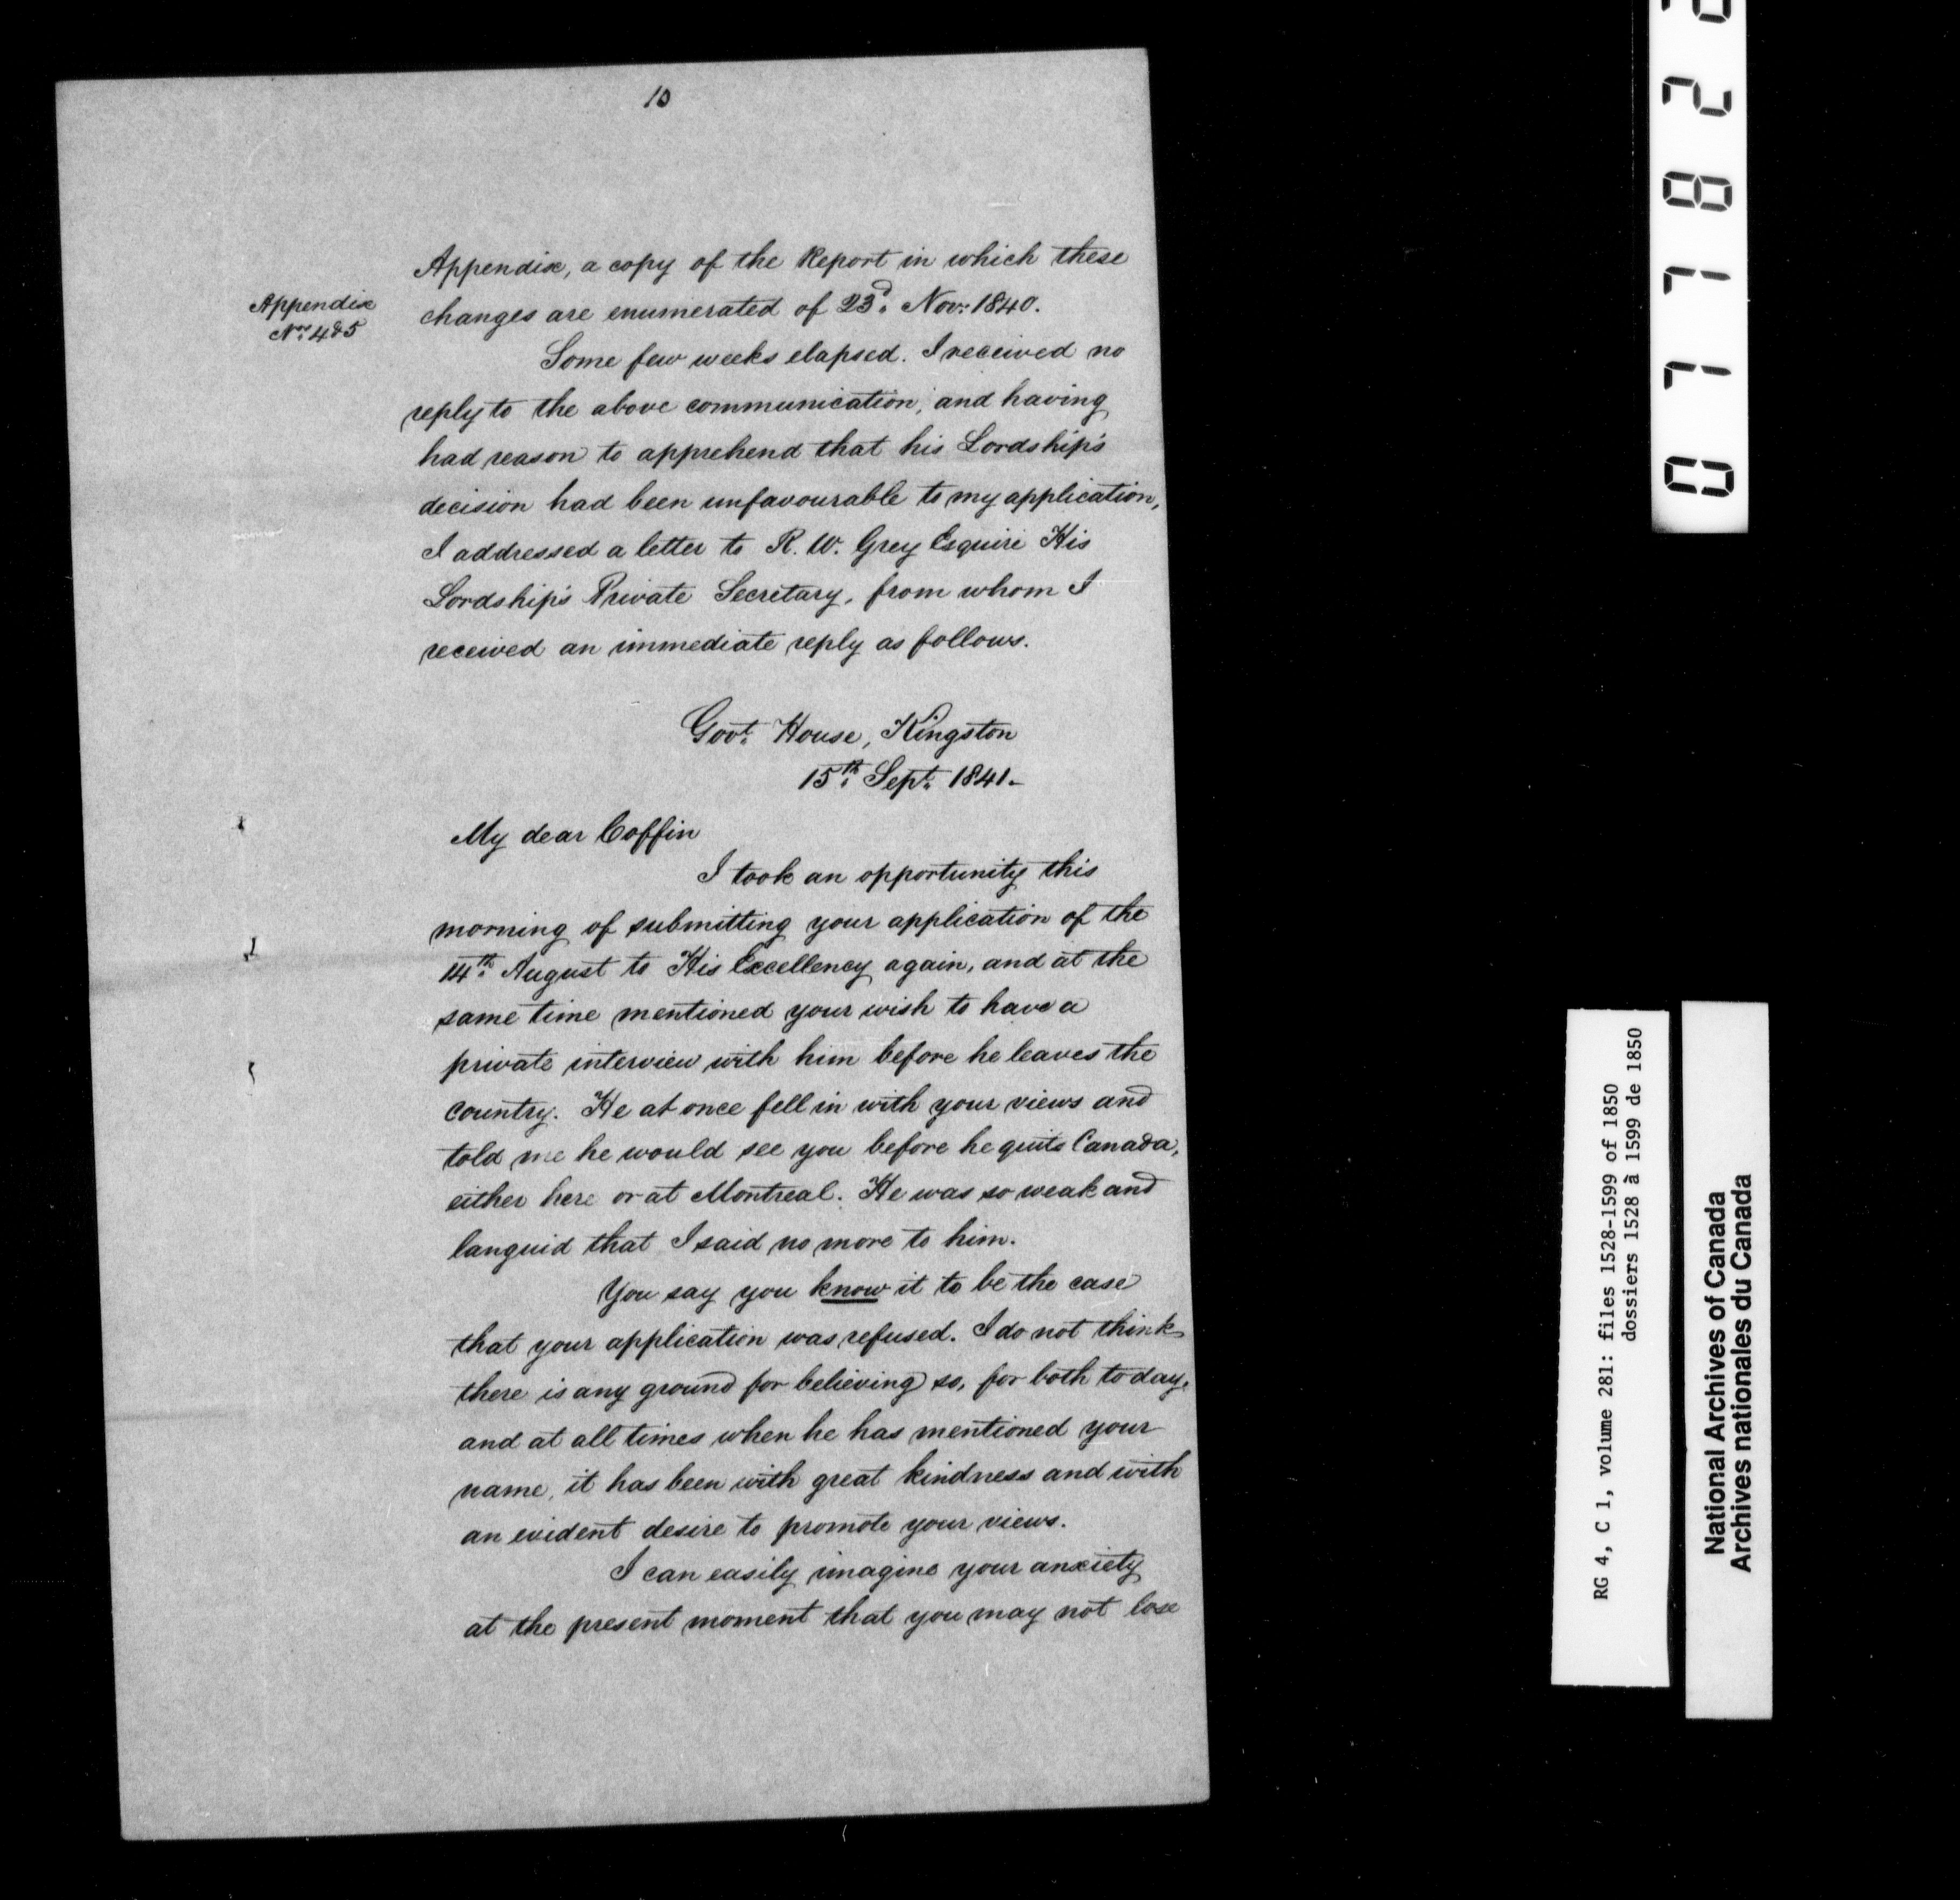 10
Appendix, a copy of the Report in which these
Appendix
Nos. 4&5
changes are enumerated of 23d. Nov. 1840.
Some few weeks elapsed. I received no
reply to the above communication, and having
had reason to apprehend that his Lordship's
decision had been unfavourable to my application,
I addressed a letter to R. W. Grey Esquire His
Lordship's Private Secretary, from whom I
received an immediate reply as follows.
Govt. House, Kingston
15th. Sept. 1841.-
My dear Coffin
I took an opportunity this
morning of submitting your application of the
14th. August to His Excellency again, and at the
same time mentioned your wish to have a
private interview with him before he leaves the
country. He at once fell in with your views and
told me he would see you before he quits Canada,
either here or at Montreal. He was so weak and
languid that I said no more to him.
You say you know it to be the case
that your application was refused. I do not think
there is any ground for believing so, for both to day,
and at all times when he has mentioned your
name, it has been with great kindness and with
an evident desire to promote your views.
I can easily imagine your anxiety
at the present moment that you may not lose
RG 4, C 1, volume 281: files 1528-1599 of 1850
dossiers 1528 à 1599 de 1850
National Archives of Canada
Archives nationales du Canada
07782